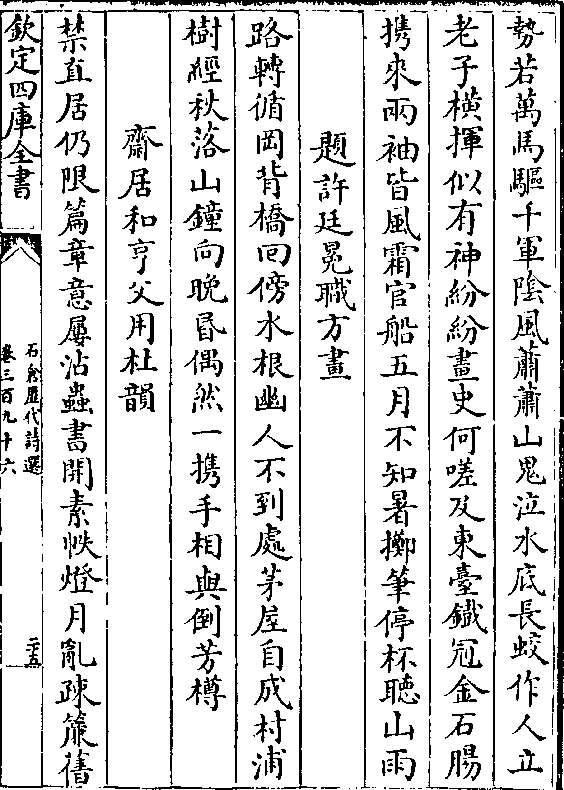 勢若萬馬驅千軍陰風蕭蕭山鬼泣水底長蛟作人立
老子橫揮似有神紛紛畫史何嗟及東臺鐵冠金石腸
攜來兩袖皆風霜官船五月不知暑擲筆停杯聽山雨
題許廷冕職方畫
路轉循岡背橋回傍水根幽人不到處茅屋自成村浦
樹經秋落山鐘向晚昏偶然一携手相與倒芳樽
齋居和亨父用杜韻
禁直居仍限篇章意屢沾蟲書開素帙燈月亂疎簾舊
欽定四庫全書
石倉歷代詩選
卷三百九十六
二十五